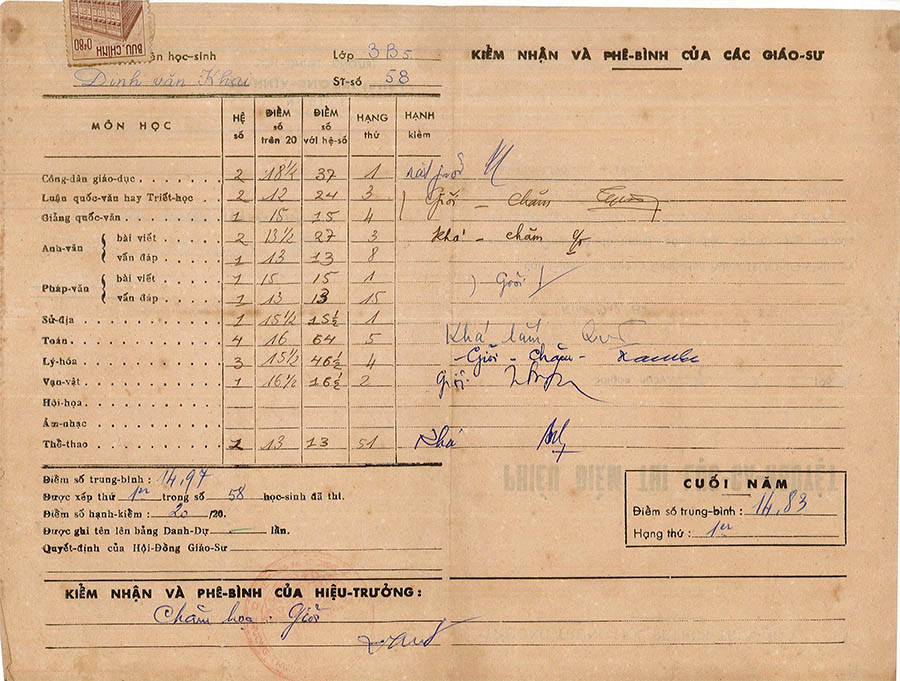 BƯU-CHÍNH 0$80
ên học-sinh Lớp 3B5
Đinh văn Khai Sĩ-số 58
KIỂM NHẬN VÀ PHÊ-BÌNH CỦA CÁC GIÁO-SƯ
MÔN HỌC HỆ số ĐIỂM số trên 20 ĐIỂM số với hệ-số HẠNG thứ HẠNH kiểm
Công-dân giáo-dục 2 18 1/2 37 1 rất giỏi
Luận quốc-văn hay Triết-học 2 12 24 3 Giỏi - chăm
Giảng quốc-văn 1 15 15 4
Anh-văn { bài viết 2 13 1/2 27 3 Khá - chăm
vấn đáp 1 13 13 8
Pháp-văn { bài viết 1 15 15 1 ) Giỏi
vấn đáp 1 13 13 15
Sử-địa 1 15 1/2 15 1/2 1
Toán 4 16 64 5 Khá lắm
Lý-hóa 3 15 1/2 46 1/2 4 - Giỏi - chăm -
Vạn-vật 1 16 1/2 16 1/2 2 Giỏi
Hội-họa
Âm-nhạc
Thể-thao 1 13 13 51 Khá
Điểm số trung-bình : 14,97
Được xếp thứ 1er trong số 58 học-sinh đã thi.
Điểm số hạnh-kiểm : 20 /20.
Được ghi tên lên bảng Danh-Dự lần.
Quyết-định của Hội-Đồng Giáo-Sư
CUỐI NĂM
Điểm số trung-bình : 14,83
Hạng thứ : 1er
KIỂM NHẬN VÀ PHÊ-BÌNH CỦA HIỆU-TRƯỞNG :
Chăm học. Giỏi